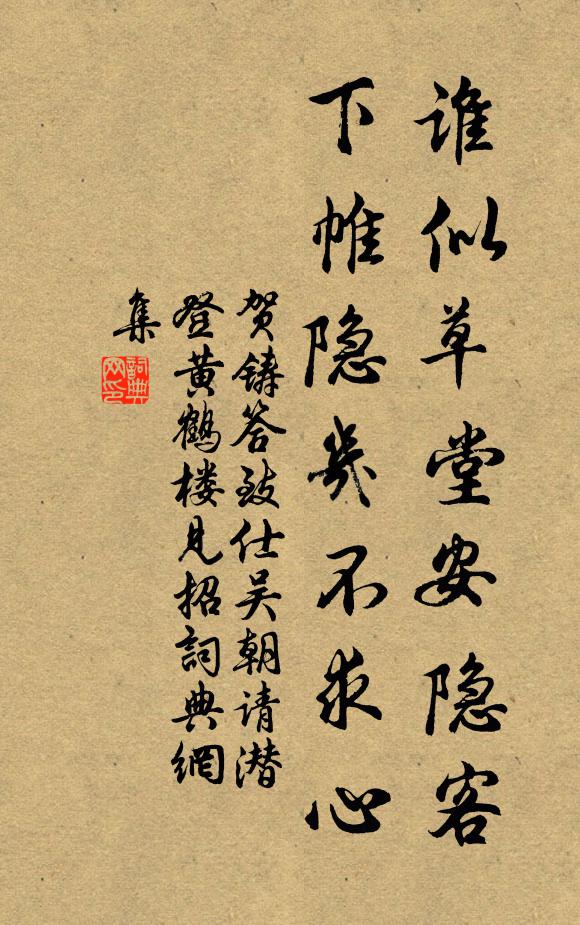 谁似草堂安隐客
下帷隐几不求心
贺铸答致仕吴朝请潜
登黄鹤楼见招詞典網
集
詞典
网印